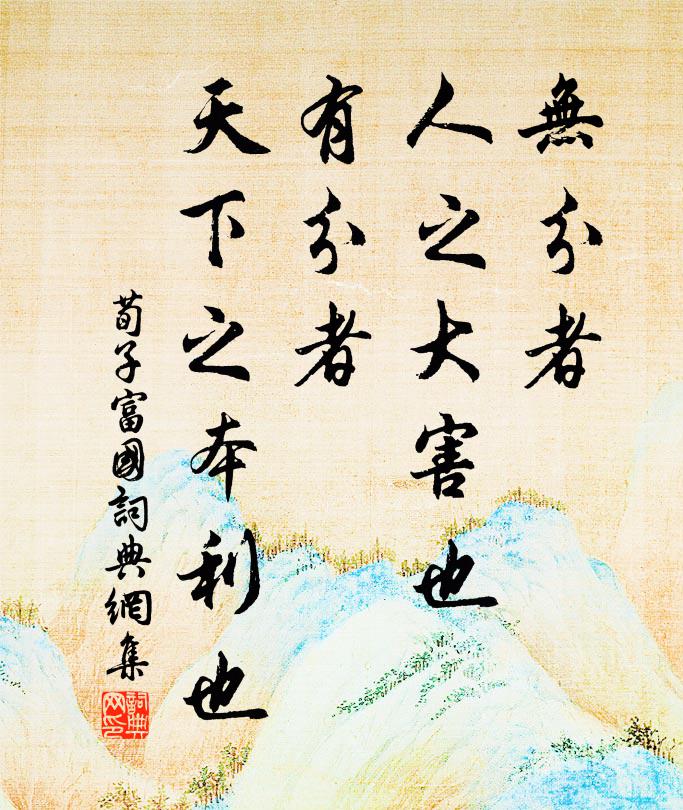 無分者
人之大害也
有分者
天下之本利也
荀子富國詞典網集
詞典
网印